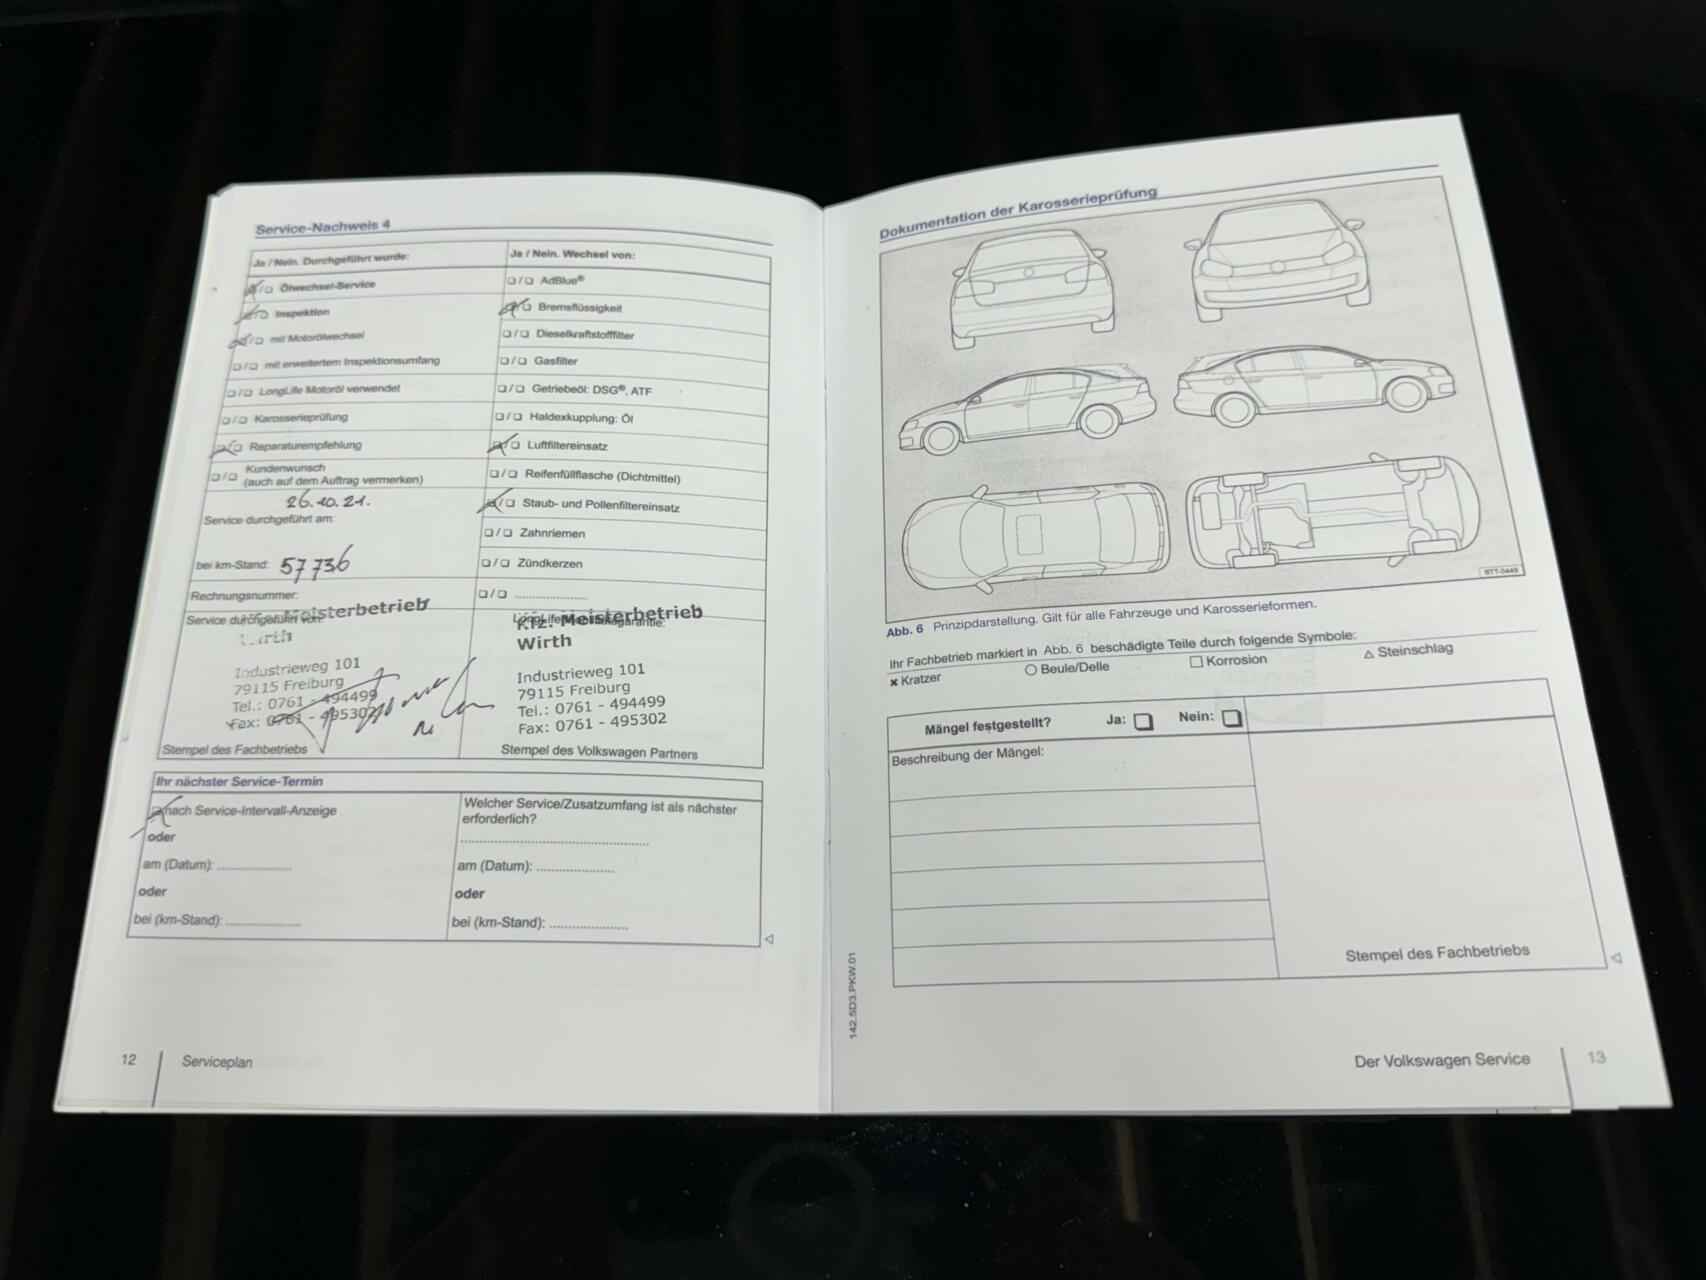 Service-Nachweis 4
Ja / Nein. Durchgeführt wurde:
❏/❏ Ölwechsel-Service
❏/❏ Inspektion
❏/❏ mit Motorölwechsel
❏/❏ mit erweitertem Inspektionsumfang
❏/❏ LongLife Motoröl verwendet
❏/❏ Karosserieprüfung
❏/❏ Reparaturempfehlung
❏/❏ Kundenwunsch
(auch auf dem Auftrag vermerken)
26.10.21.
Service durchgeführt am:
bei km-Stand: 57736
Rechnungsnummer:
Service durchgeführt von:
Meisterbetrieb
Wirth
Industrieweg 101
79115 Freiburg
Tel.: 0761 - 494499
Fax: 0761 - 495302
Stempel des Fachbetriebs
Ja / Nein. Wechsel von:
❏/❏ AdBlue®
❏/❏ Bremsflüssigkeit
❏/❏ Dieselkraftstofffilter
❏/❏ Gasfilter
❏/❏ Getriebeöl: DSG®, ATF
❏/❏ Haldexkupplung: Öl
❏/❏ Luftfiltereinsatz
❏/❏ Reifenfüllflasche (Dichtmittel)
❏/❏ Staub- und Pollenfiltereinsatz
❏/❏ Zahnriemen
❏/❏ Zündkerzen
❏/❏ ........................
Kfz. Meisterbetrieb
Wirth
Industrieweg 101
79115 Freiburg
Tel.: 0761 - 494499
Fax: 0761 - 495302
Stempel des Volkswagen Partners
Ihr nächster Service-Termin
nach Service-Intervall-Anzeige
oder
am (Datum): ........................
oder
bei (km-Stand): ........................
Welcher Service/Zusatzumfang ist als nächster
erforderlich?
............................................................
am (Datum): ........................
oder
bei (km-Stand): ........................
12 Serviceplan
Dokumentation der Karosserieprüfung
BTT-0449
Abb. 6 Prinzipdarstellung. Gilt für alle Fahrzeuge und Karosserieformen.
Ihr Fachbetrieb markiert in Abb. 6 beschädigte Teile durch folgende Symbole:
✖ Kratzer ○ Beule/Delle □ Korrosion △ Steinschlag
Mängel festgestellt? Ja: ❏ Nein: ❏
Beschreibung der Mängel:
Stempel des Fachbetriebs
142.5D3.PKW.01
Der Volkswagen Service 13